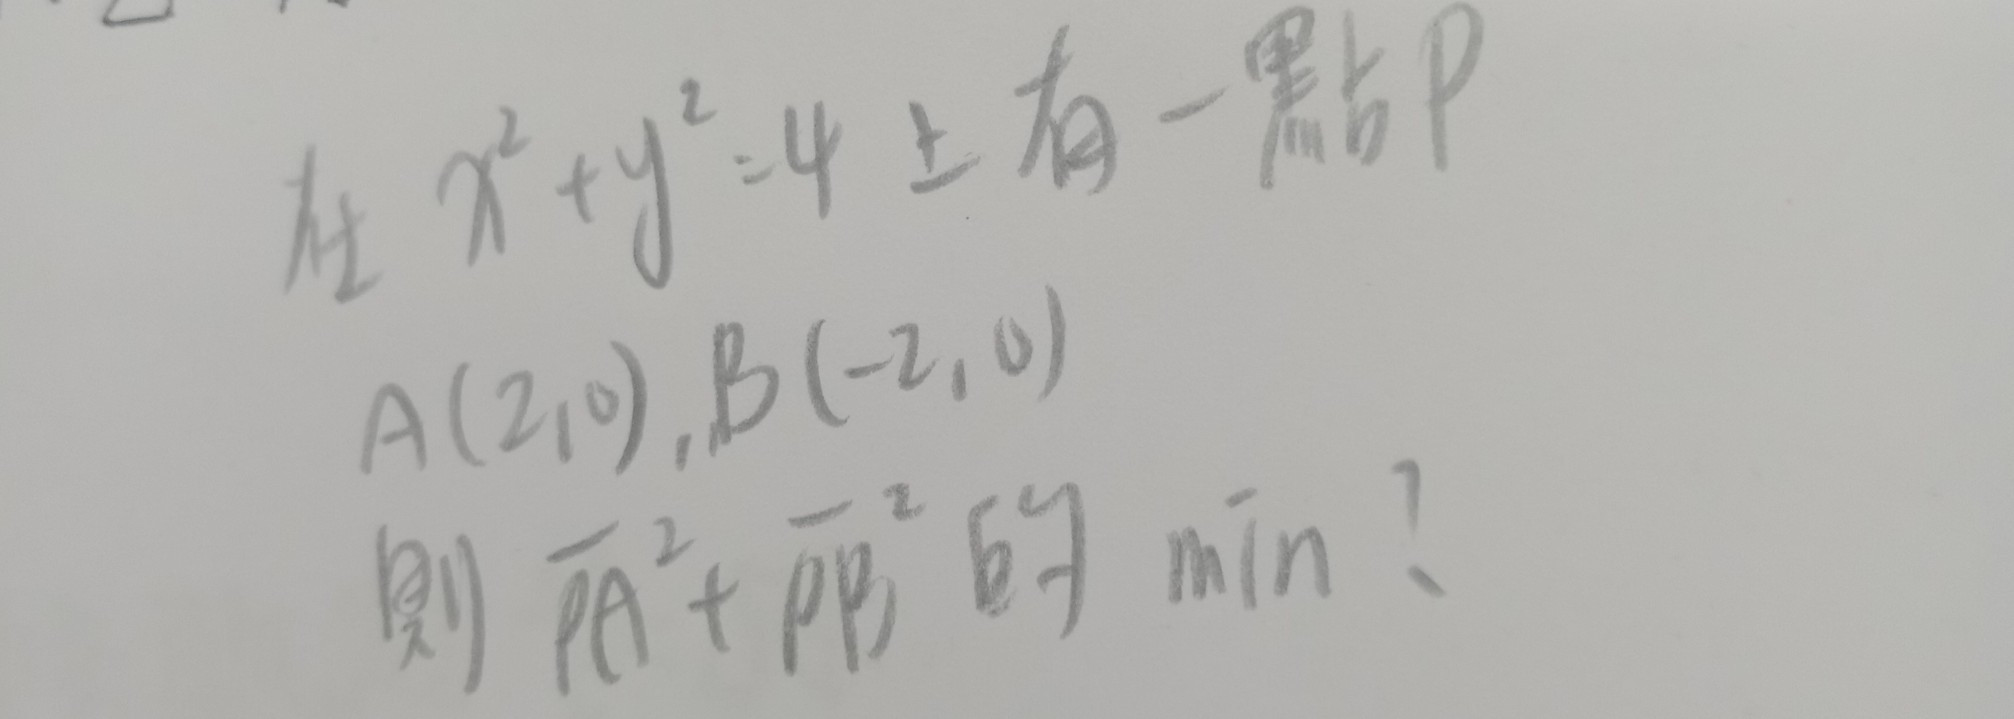 在 x²+y²=4 上有一點P
A(2,0),B(-2,0)
則 P̅A̅²+P̅B̅² 的 min?